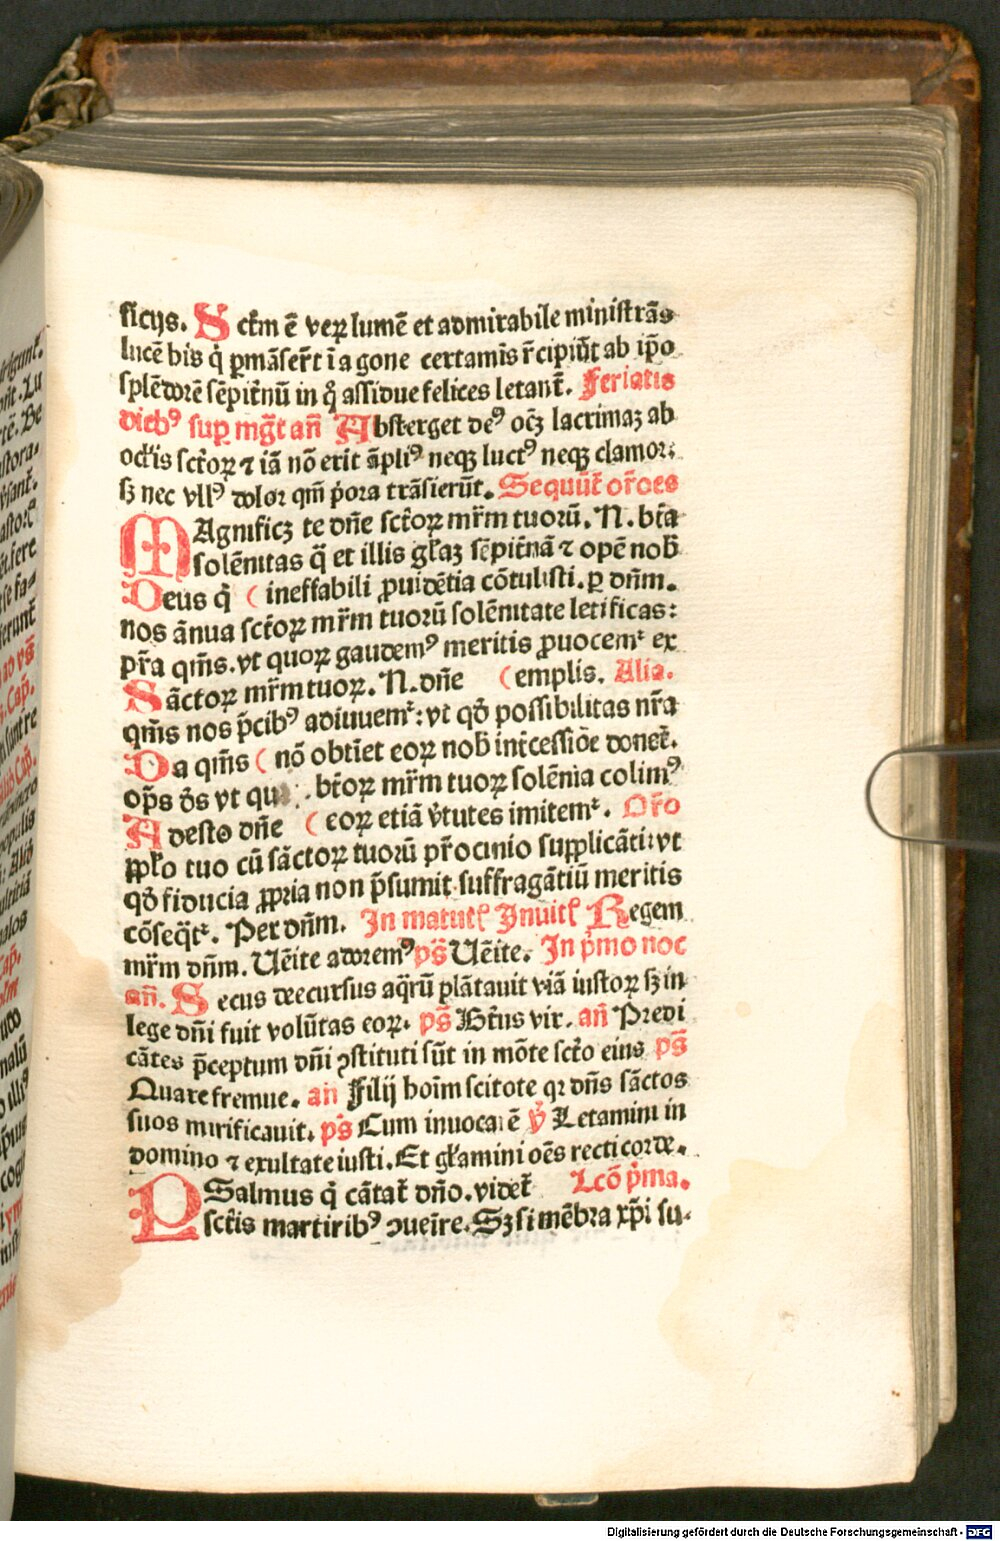 ſicijs. S ctm̄ ē veꝝ lumē et admirabile miniſtrās
lucē his q̇ ꝑmāſer̄t ī agone certamīs r̄cipiūt ab ip̄o
ſplēdorē ſēpit̄nū in q̊ aſſidue felices letant̄. Feriatis
dieb⁹ ſuꝑ mḡt an̄ Abſterget de⁹ oēꝫ lacrimaꝫ ab
ocl̓is ſct̄oꝝ ⁊ iā nō erit āpli⁹ neqꝫ luct⁹ neqꝫ clamor:
ſꝫ nec vll⁹ dolor qm̄ p̓ora trāſierūt. Sequūt̄ or̄oes
MAgnificꝫ te dn̄e ſct̄oꝝ mr̄m tuorū. N. bt̄a
ſolēnitas q̄ et illis gl̓aꝫ ſēpit̄nā ⁊ opē nob̄
Deus q̇ ( ineffabili ꝓuidētia cōtuliſti. ꝑ dn̄m.
nos ānua ſct̄oꝝ mr̄m tuorū ſolēnitate letificas:
pr̄a qm̄s. vt quoꝝ gaudem⁹ meritis ꝓuocem̓ ex
Sāctoꝝ mr̄m tuoꝝ. N. dn̄e ( emplis. Alia.
qm̄s nos p̄cib⁹ adiuuem̓: vt qđ poſſibilitas nr̄a
Da qm̄s ( nō obtīet eoꝝ nob̄ int̄ceſſiōe donet̄.
op̄s d̄s vt bt̄oꝝ mr̄m tuoꝝ ſolēnia colim⁹
Adeſto dn̄e ( eoꝝ etiā v̓tutes imitem̓. Or̄o
pp̄l̓o tuo cū ſāctoꝝ tuorū pr̄ocinio ſupplicāti: vt
qđ fiducia ꝓpria non p̄ſumit ſuffragātiū meritis
cōſeq̄t̓. Per dn̄m. In matutꝭ Inuitꝭ Regem
mr̄m dn̄m. Uēite adorem⁹ pẜ Uēite. In p̓mo noc
an̄. S ecus decurſus aq̄rū plātauit viā iuſtoꝝ ſꝫ in
lege dn̄i fuit volūtas eoꝝ. pẜ Bt̄us vir. an̄ Predi
cātes p̄ceptum dn̄i ꝯſtituti ſūt in mōte ſct̄o eius pẜ
Quare fremue. an̄ Filij hoīm ſcitote qꝛ dn̄s ſāctos
ſuos mirificauit. pẜ Cum inuocarē ꝟ Letamini in
domino ⁊ exultate iuſti. Et gl̓amini oēs recti corde.
PSalmus q̇ cātat̄ dn̄o. videt̄ Lcō p̓ma.
ſct̄is martirib⁹ ↄueīre. Sꝫ ſi mēbra xp̄i ſu-
Digitalisierung gefördert durch die Deutsche Forschungsgemeinschaft - DFG